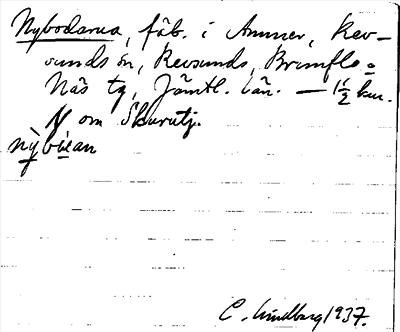 Nybodarna, fäb. i Ammer, Rev-
sunds sn, Revsunds, Brunflo o
Näs tg, Jämtl. län. — 1 1/2 km.
N om Skurutj.
nỳbúan
C. Lindberg 1937.